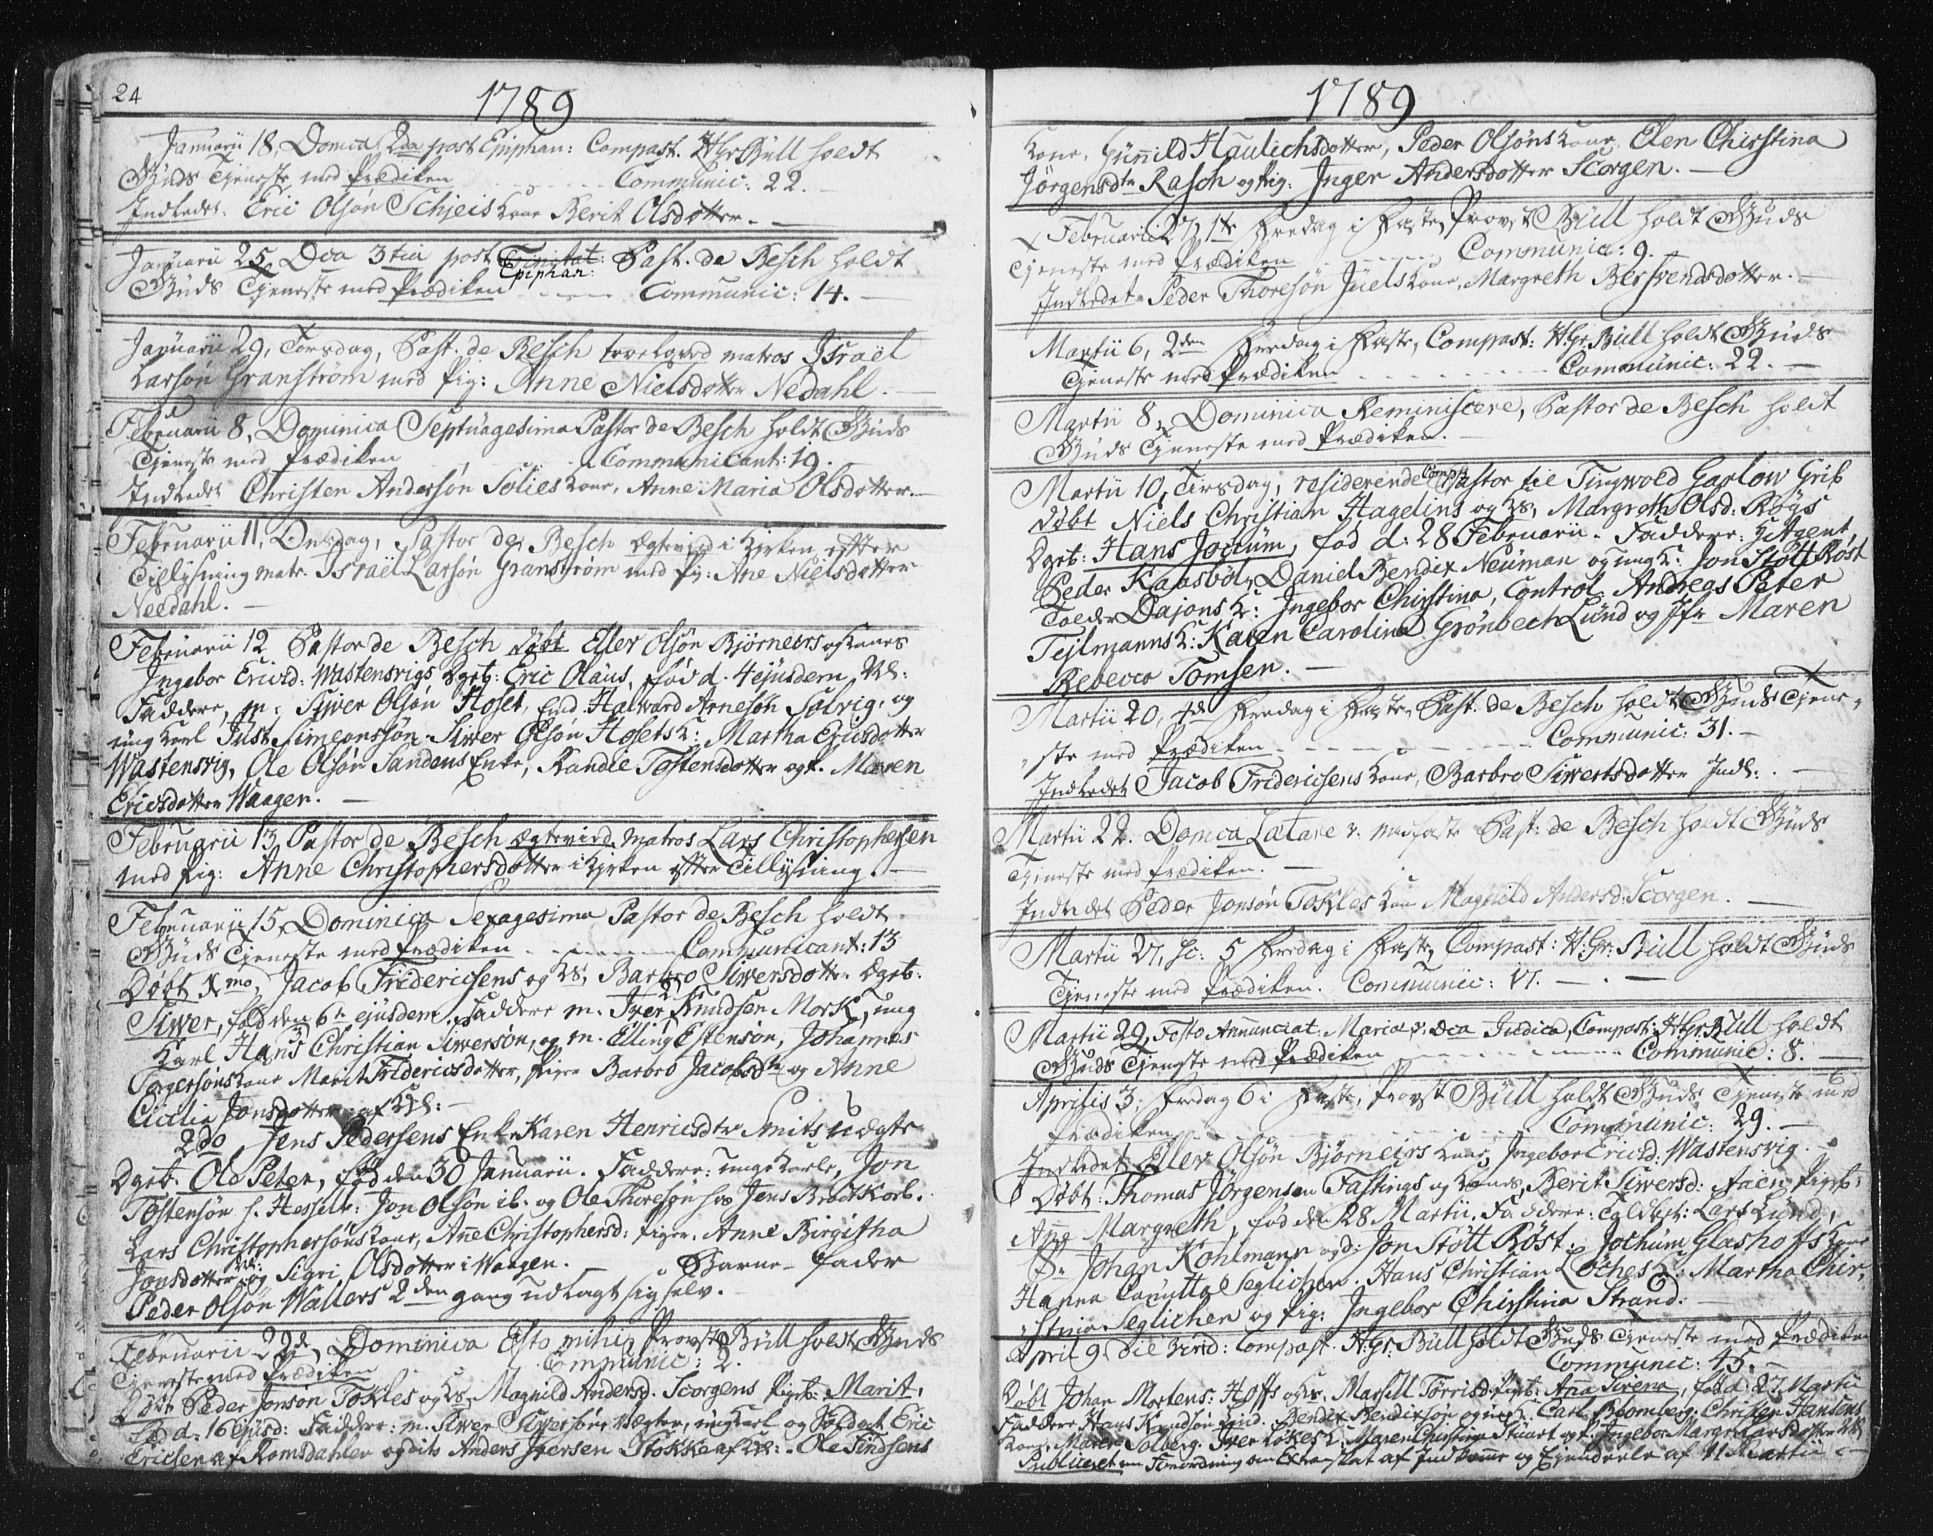 24
1789
Januarii 18, Domca 2da post Epiphan: Compast. HGrBüll holdt
Guds Tjeneste med Prædiken Communic: 22.
Indledet. Eric Olsøn Schieis kone Berit Olsdotter.
Januarii 25, Dca 3tia post Trinitat: Past. de Besch holdt
Epiphan:
Guds Tjeneste med Prædiken Communic: 14.
Januarii 29, Torsdag, Past. de Besch trolovet matros Israël
Larsøn Granstrøm med pig: Anne Nielsdotter Nedahl.
Februarii 8, Dominica Septuagesima Pastor de Besch holdt Guds
Tjeneste med Prædiken Communicant: 19.
Indledet Christen Andersøn Solies kone, Anne Maria Olsdotter.
Februarii 11, Onsdag, Pastor de Besch ægteviet i Kirken efter
Tillysning matr. Israël Larsøn Granstrøm med Pig: Ane Nielsdotter
Needahl.
Februarii 12 Pastor de Besch døbt Eller Olsøn Bjørneirs og kones
Ingebor Ericd: Wastensvigs Dgeb: Eric Olaus, fød d. 4 ejusdem Vbl:
Faddere, m: Siwer Olsøn Hoset, Halvard Arnesøn Solvig, og
ungkarl Just Simeonssøn. Siwer Olsøn Hosets K: Martha Ericsdotter
Wastensvig, Ole Olsøn Sandens Enke, Randie Tostensdotter og p. Maren
Ericsdotter Waagen.
Februarii 13 Pastor de Besch ægteviet matros Lars Christophersen
med pig: Anne Christophersdotter i Kirken efter Tillysning.
Februarii 15, Dominica Sexagesima Pastor de Besch holdt
Guds Tjeneste med Prædiken Communicant: 13
Døbt 1mo, Jacob Fridericsens og Ks, Barbro Siwersdotter Dgeb:
Siwer, fød den 6te ejusdem. Faddere m. Iver Knudsen Mork, ung
karl Hans Christian Siwersøn, og m. Elling Estensøn, Johannes
Torgersøns kone Marit Fridericsdotter, Piger Barbro Jacobsdtr og Anne
Cicilia Jonsdotter af Kbl:
2do Jens Pedersens Enke Karen Henricsdtr Smits uægte
Dgeb. Ole Peter, fød den 30 Januarii. Faddere: unge karle, Jon
Tostensøn h. Hesselb: Jon Olsøn ib. og Ole Thoresøn hos Jens Brodtkorb.
Lars Christophersøns kone, Ane Christophersd: Piger. Anne Birgitha
Jonsdotter og Sigri Olsdotter i Waagen. Barne-fader
Peder Olsøn Wallers 2den gang udlagt sig selv.
Februarii 22de, Dominica Esto mihi, Provst Büll holdt Guds
Tjeneste med Prædiken Communic: 2.
Døbt Peder Jonsøn Tokles og Ks Magnild Andersd. Scorgens Pigeb: Marit,
fød d: 16 ejusd: Faddere: m. Siwer Siwersøn, Vægter, ungkarl og Soldat Eric
Ericsen af Romsdahlen og dito Anders Iversen Stokke af Kbl:. Ole Findsens
1789
kone, Gunnild Haulichsdotter, Peder Olsøns kone, Elen Chirstina
Jørgensdtr Rasch og Pig: Inger Andersdotter Scorgen.
Februarii 27, 1te Fredag i Faste, Provst Büll holdt Guds
Tjeneste med Prædiken Communic: 9.
Indledet Peder Thoresøn Juels kone, Margreth Bersvendsdotter.
Martii 6, 2den Fredag i Faste, Compast: HGr. Büll holdt Guds
Tjeneste med Prædiken Communic: 22.
Martii 8, Dominica Reminiscere, Pastor de Besch holdt
Guds Tjeneste med Prædiken.
Martii 10, Tirsdag, residerende Comp: Pastor til Tingwold Garlow Grib
døbt Niels Christian Hagelins og Ks, Margreth Olsd: Røgs
Dgeb: Hans Jochum, fød d: 28 Februarii. Faddere: H Agent,
Peder Kaasbøl, Daniel Bendix Neuman og ungk: Jon Stott Røst
Tolder Dajons K: Ingebor Chirstina, Control. Andreas Peter
Tejlmanns K: Karen Carolina Grønbech Lund og Jfr Maren
Rebecca Tomsen.
Martii 20, 4de Fredag i Faste, Past. de Besch holdt Guds Tjene-
ste med Prædiken Communic: 31.
Indledet Jacob Fridericsens kone, Barbro Siwertsdotter Indl:
Martii 22. Domca Lætare v. midfaste Past: de Besch holdt Guds
Tjeneste med Prædiken.
Indledet Peder Jonsøn Tokles kone Magnild Andersd: Scorgen.
Martii 27, sc: 5 Fredag i Faste, Compast: H: Gr: Büll holdt Guds
Tjeneste med Prædiken. Communic: 17.
Martii 29, Festo Annunciat: Mariæ v. Dca Judica, Compast: HGr. Büll holdt
Guds Tjeneste med Prædiken Communic: 8.
Aprilis 3, Fredag 6 i Faste, Provst Büll holdt Guds Tjeneste med
Prædiken Communic: 29.
Indledet Eller Olsøn Bjørneirs kone, Ingebor Ericd: Wastensvig.
Døbt: Thomas Jørgensen Fastings og kones, Berit Siwersd: Aaen Pigeb:
Ane Margreth, fød de 28 Martii. Faddere: Toldbet: Lars Lund,
Sr Johan Kohlmann og d: Jon Stott Røst. Jochum Glashoffs kone
Hanna Canutta Seglichen. Hans Christian Loches K: Martha Chir-
stina Seglichen og Pig: Ingebor Chirstina Strand.
April 9. Die Virid: Compast. H: Gr: Büll holdt Guds Tjeneste med Prædiken
Communic: 45.
Døbt Johan Mortens: Hoffs og Ks, Marsell Torrisd: Pigeb: Ana Sirena, fød d: 27 Martii
Faddere Hans Knudsøn Lind. Bendix Bendixsøn og ungk: Carl Blomberg. Christen Hansens
kone, Maren Solberg. Iver Lökes K: Maren Chirstina Stuart og p. Ingebor Margr: Larsdotter Kbl
Publiceret en Forordning om Extraskat af Indkomme og Ejendeele af 11 Martii